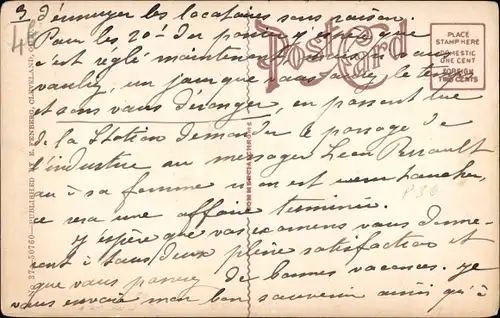 3 d'ennuyer les locataires sans raison.
Pour les 20d. du panier j'espère que
c'est réglé maintenant
vouliez un jour que vous aurez le temps
et sans vous déranger, en passant rue
de la Station demander le passage de
l'industrie au messager Léon Perrault
ou à sa femme
ce sera une affaire terminée.
J'espère que vos examens vous donne-
ront à tous deux pleine satisfaction et
que vous passerez de bonnes vacances. Je
vous envoie mon bon souvenir ainsi qu'à
Post Card
PLACE
STAMP HERE
DOMESTIC
ONE CENT
FOREIGN
TWO CENTS
50760—PUBLISHED BY E. FENBERG, CLEVELAND,
COMMERCIALCHROME